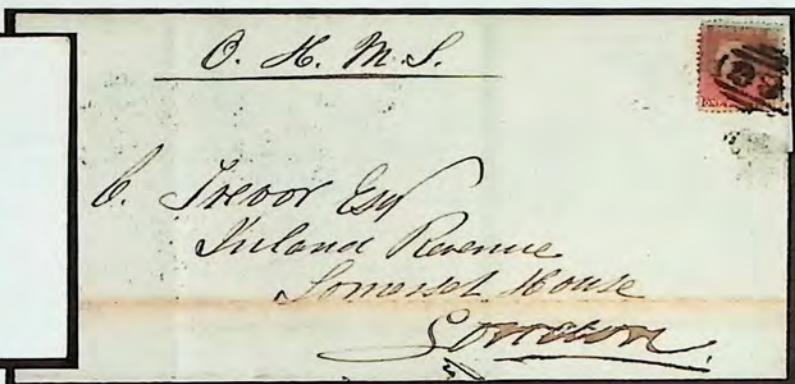 O. H. M. S.
C. Trevor Esq
Inland Revenue
Somerset House
London.